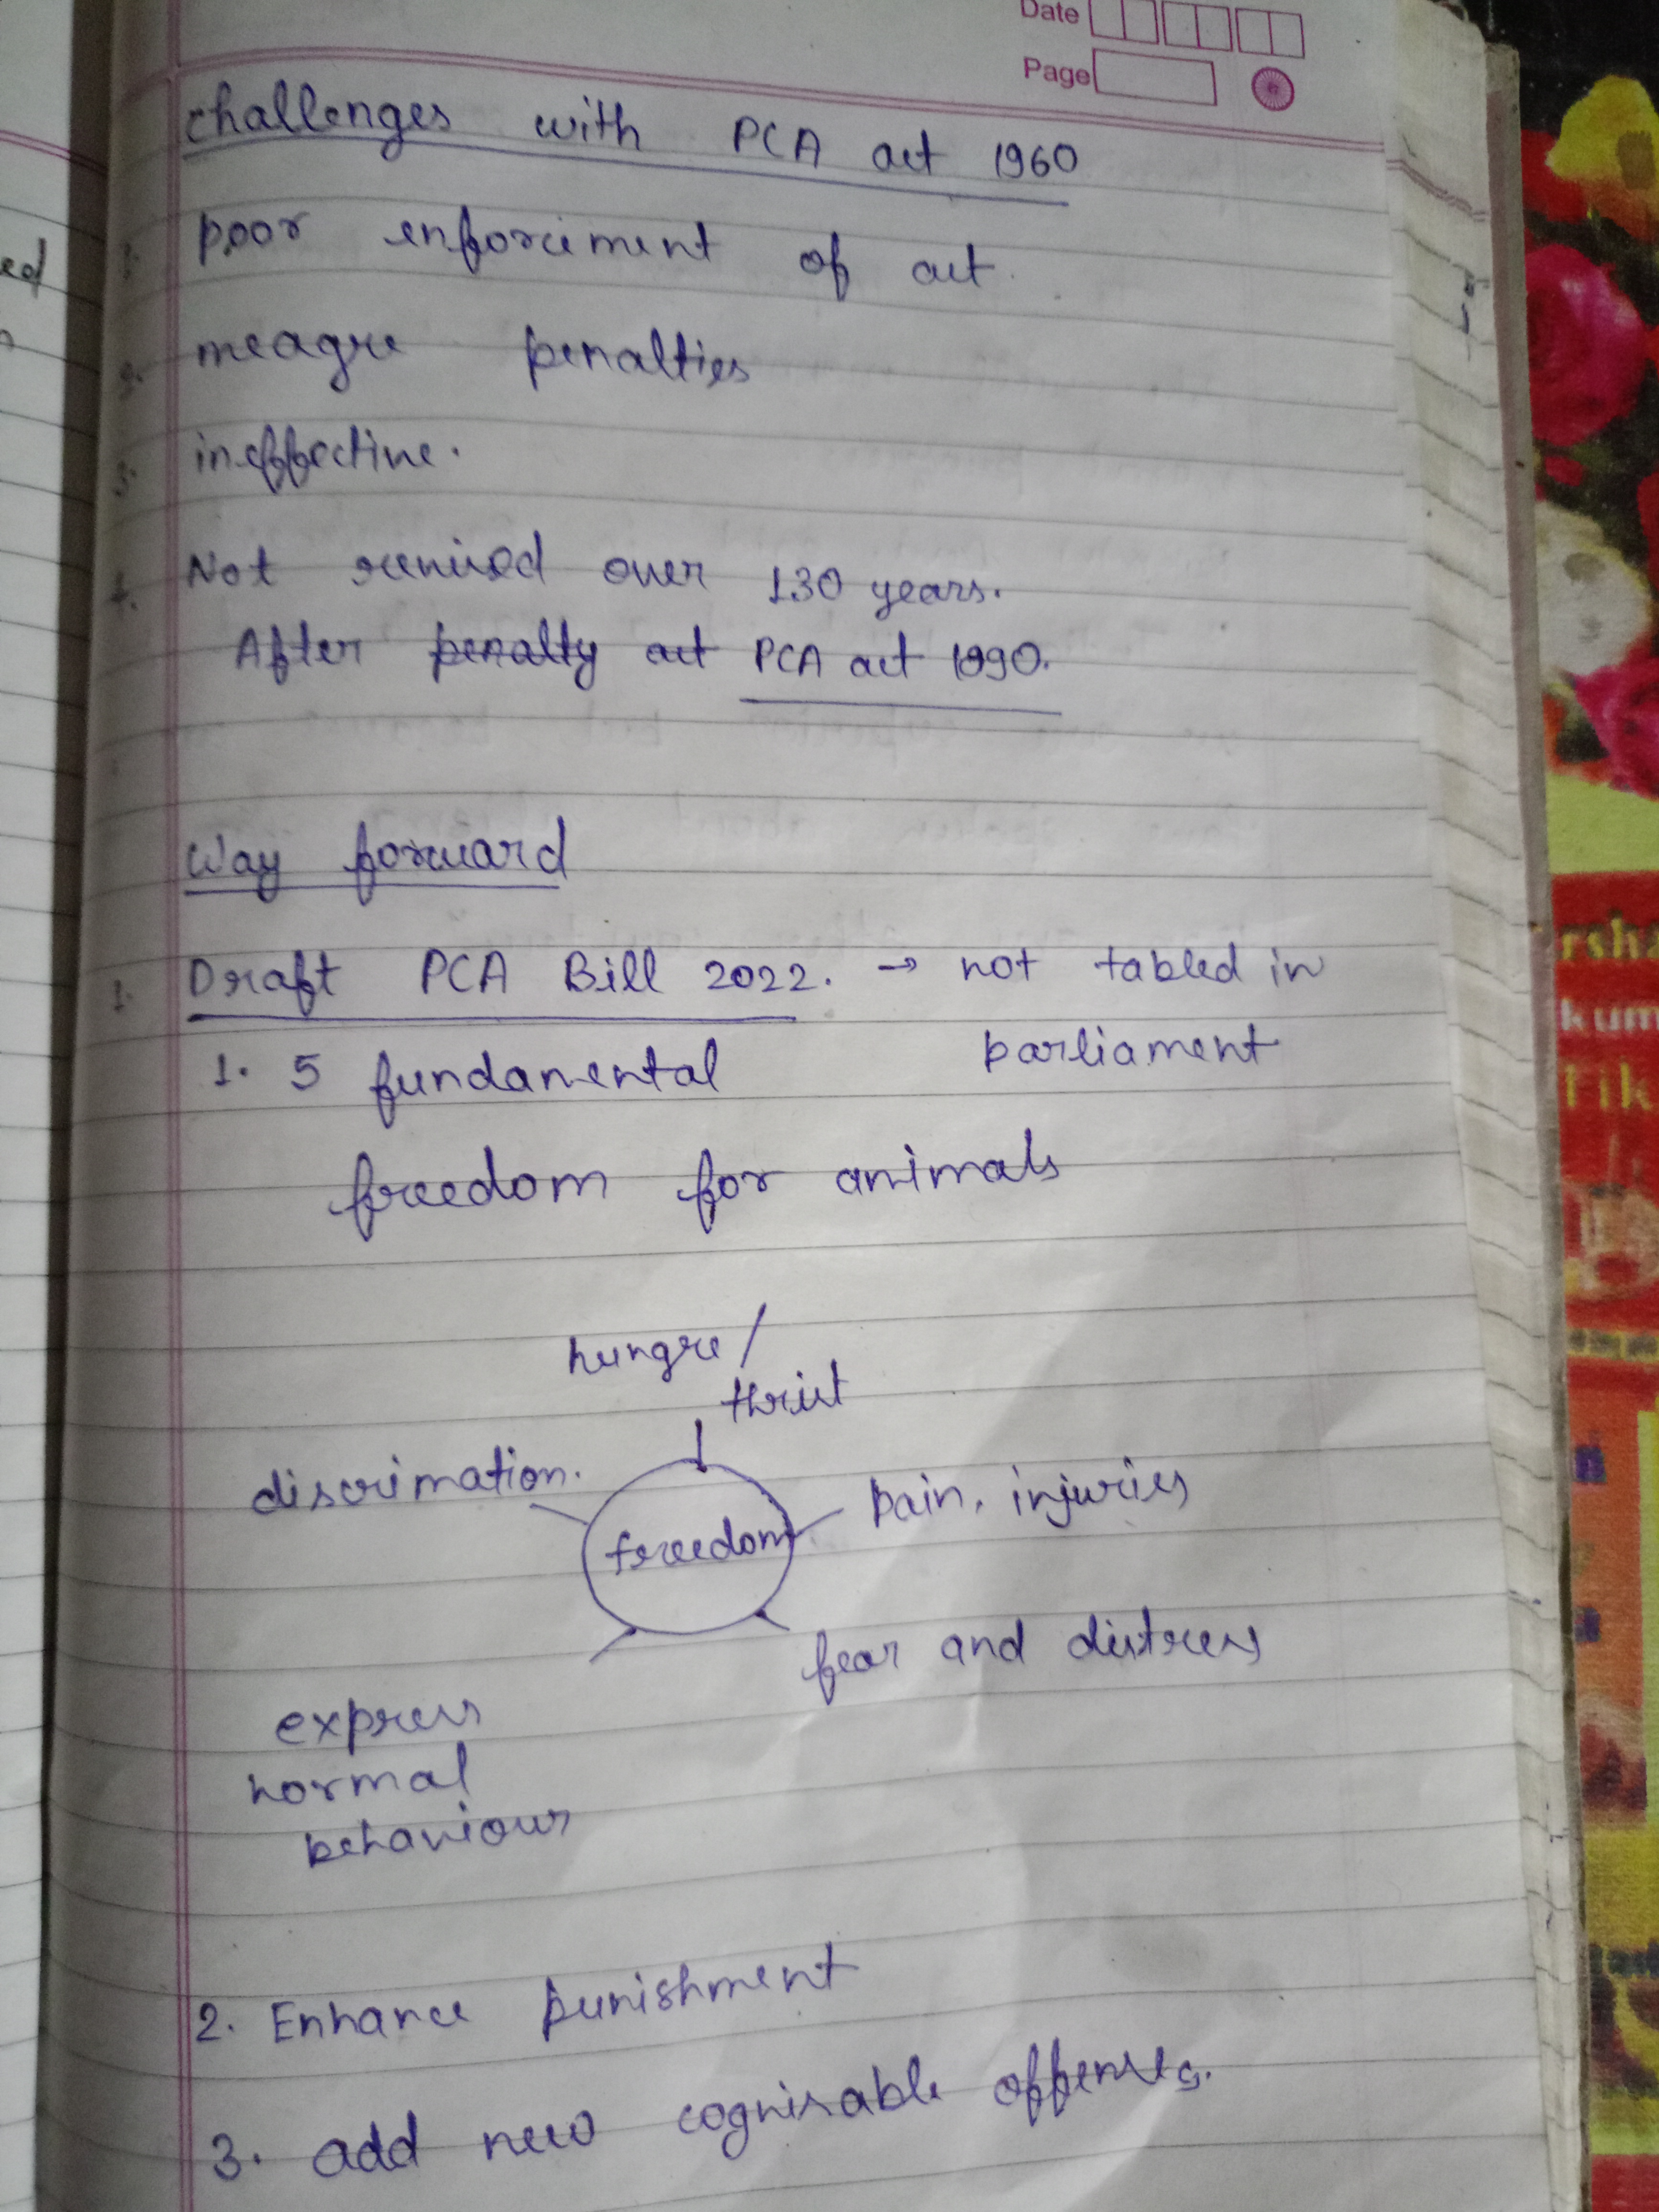 Date
Page
challenges with PCA act 1960
poor enforcement of act.
2. meagre penalties
3. ineffective.
4. Not revised over 130 years.
After penalty act PCA act 1890.
Way forward
1. Draft PCA Bill 2022. → not tabled in
parliament
1. 5 fundamental
freedom for animals
hungre /
thrist
discrimation.
freedom
pain, injuries
fear and distress
express
normal
behaviour
2. Enhance punishment
3. add new cognisable offenses.
ed
rsha
kum
Tik